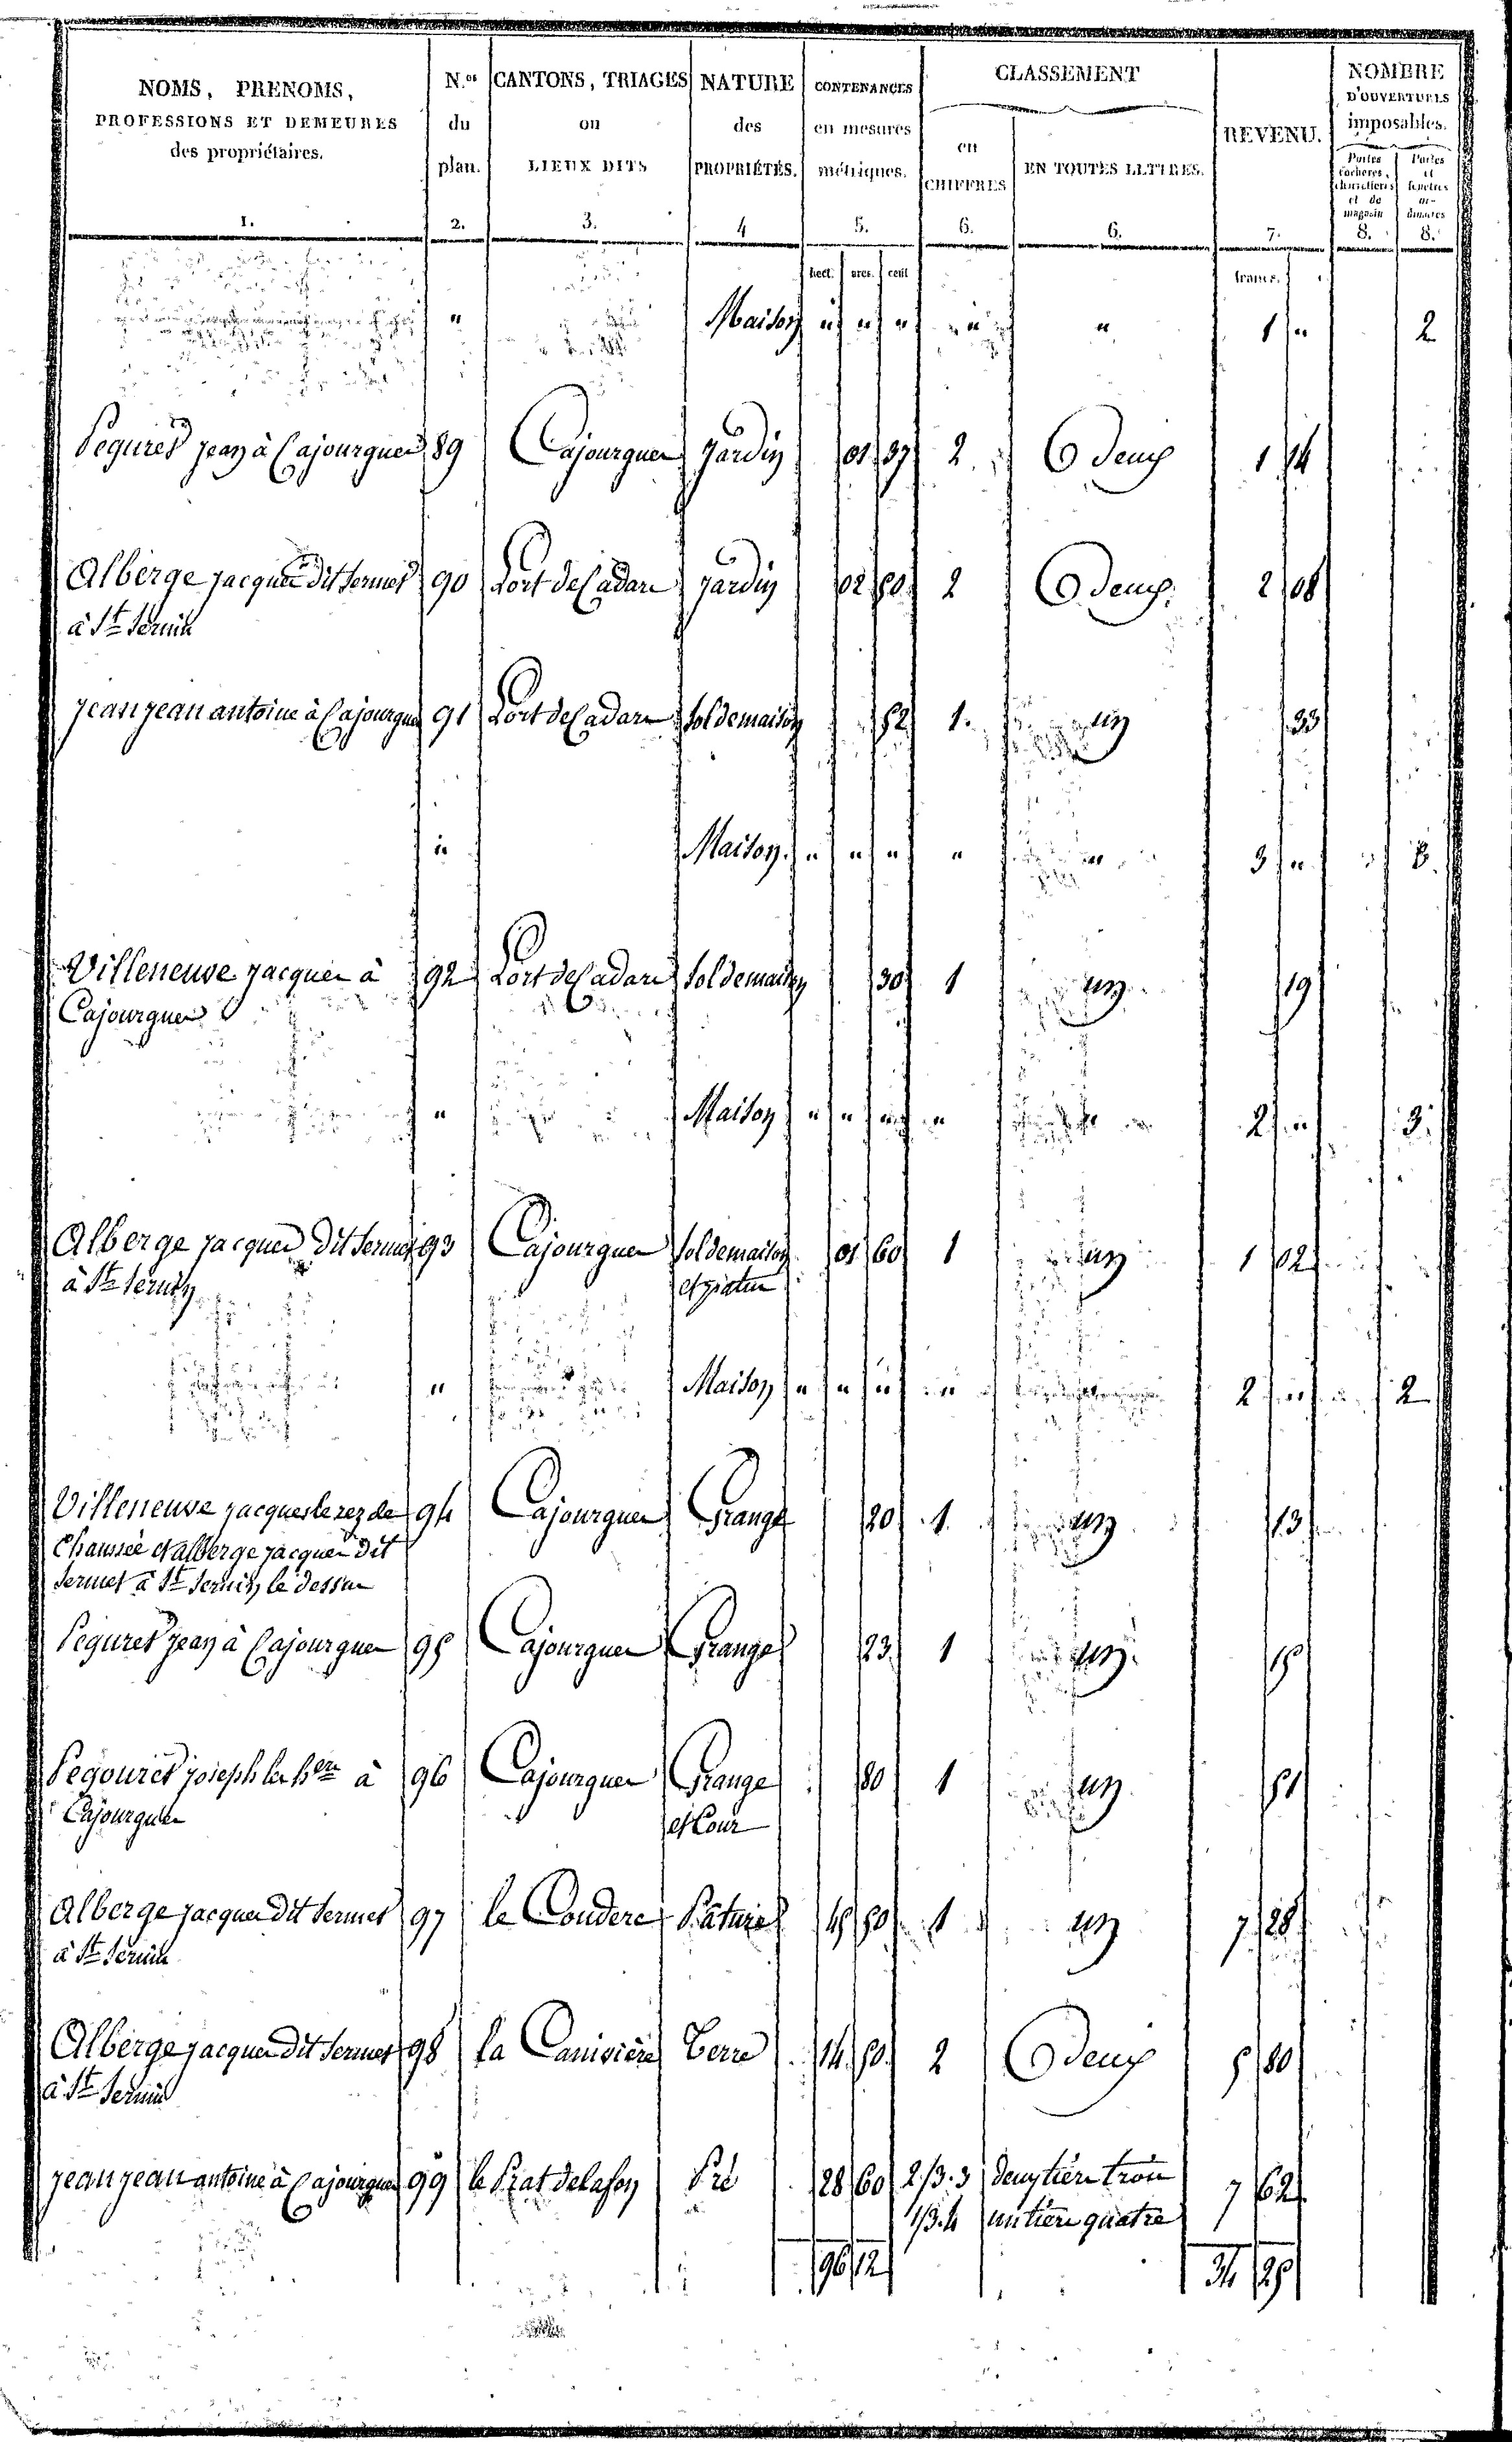 NOMS, PRENOMS, PROFESSIONS ET DEMEURES des propriétaires. 1.
N.os du plan. 2.
CANTONS, TRIAGES ou LIEUX DITS 3.
NATURE des PROPRIÉTÉS. 4
CONTENANCES en mesures métriques. 5.
CLASSEMENT
en CHIFFRES 6.
EN TOUTES LETTRES. 6.
REVENU. 7.
NOMBRE D'OUVERTURES imposables.
Portes cochères, charretières et de magasin 8.
Portes et fenêtres ordinaires 8.
hect. ares. cent francs.
" Maison " " " " " 1 " 2
Pegurés jean à Cajourgues 89 Cajourgues jardin 01 37 2 deux 1 14
Alberge jacques dit Sermet 90 Lort de Cadars jardin 02 50 2 deux 2 08
à St Sernin
jeanjean antoine à Cajourgues 91 Lort de Cadars sol de maison 52 1 un 33
" Maison " " " " " 3 "
Villeneuve jacques à 92 Lort de Cadars sol de maison 30 1 un 19
Cajourgues
" Maison " " " " 2 " 3
Alberge jacques dit Sermet 93 Cajourgues sol de maison 01 60 1 un 1 02
à St Sernin
" Maison " " " " 2 " 2
Villeneuve jacques le rez de 94 Cajourgues Grange 20 1 un 13
Chaussée et alberge jacques dit
Sermet à St Sernin le dessus
Pegurés jean à Cajourgues 95 Cajourgues Grange 23 1 un 15
Pegourés joseph les hers à 96 Cajourgues Grange 80 1 un 51
Cajourgues et Cour
Alberge jacques dit Sermet 97 le Couderc Pâture 45 50 1 un 7 28
à St Sernin
Alberge jacques dit Sermet 98 la Canivière Terre 14 50 2 deux 5 80
à St Sernin
jeanjean antoine à Cajourgues 99 le Prat de la fon Pré 28 60 2/3. 3 deux tiers trois 7 62
1/3. 4 un tiers quatre
96 12 34 25